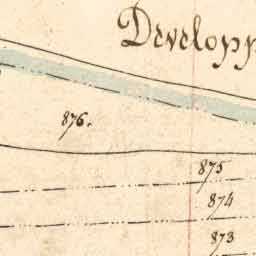 Developp
876.
875
874
873